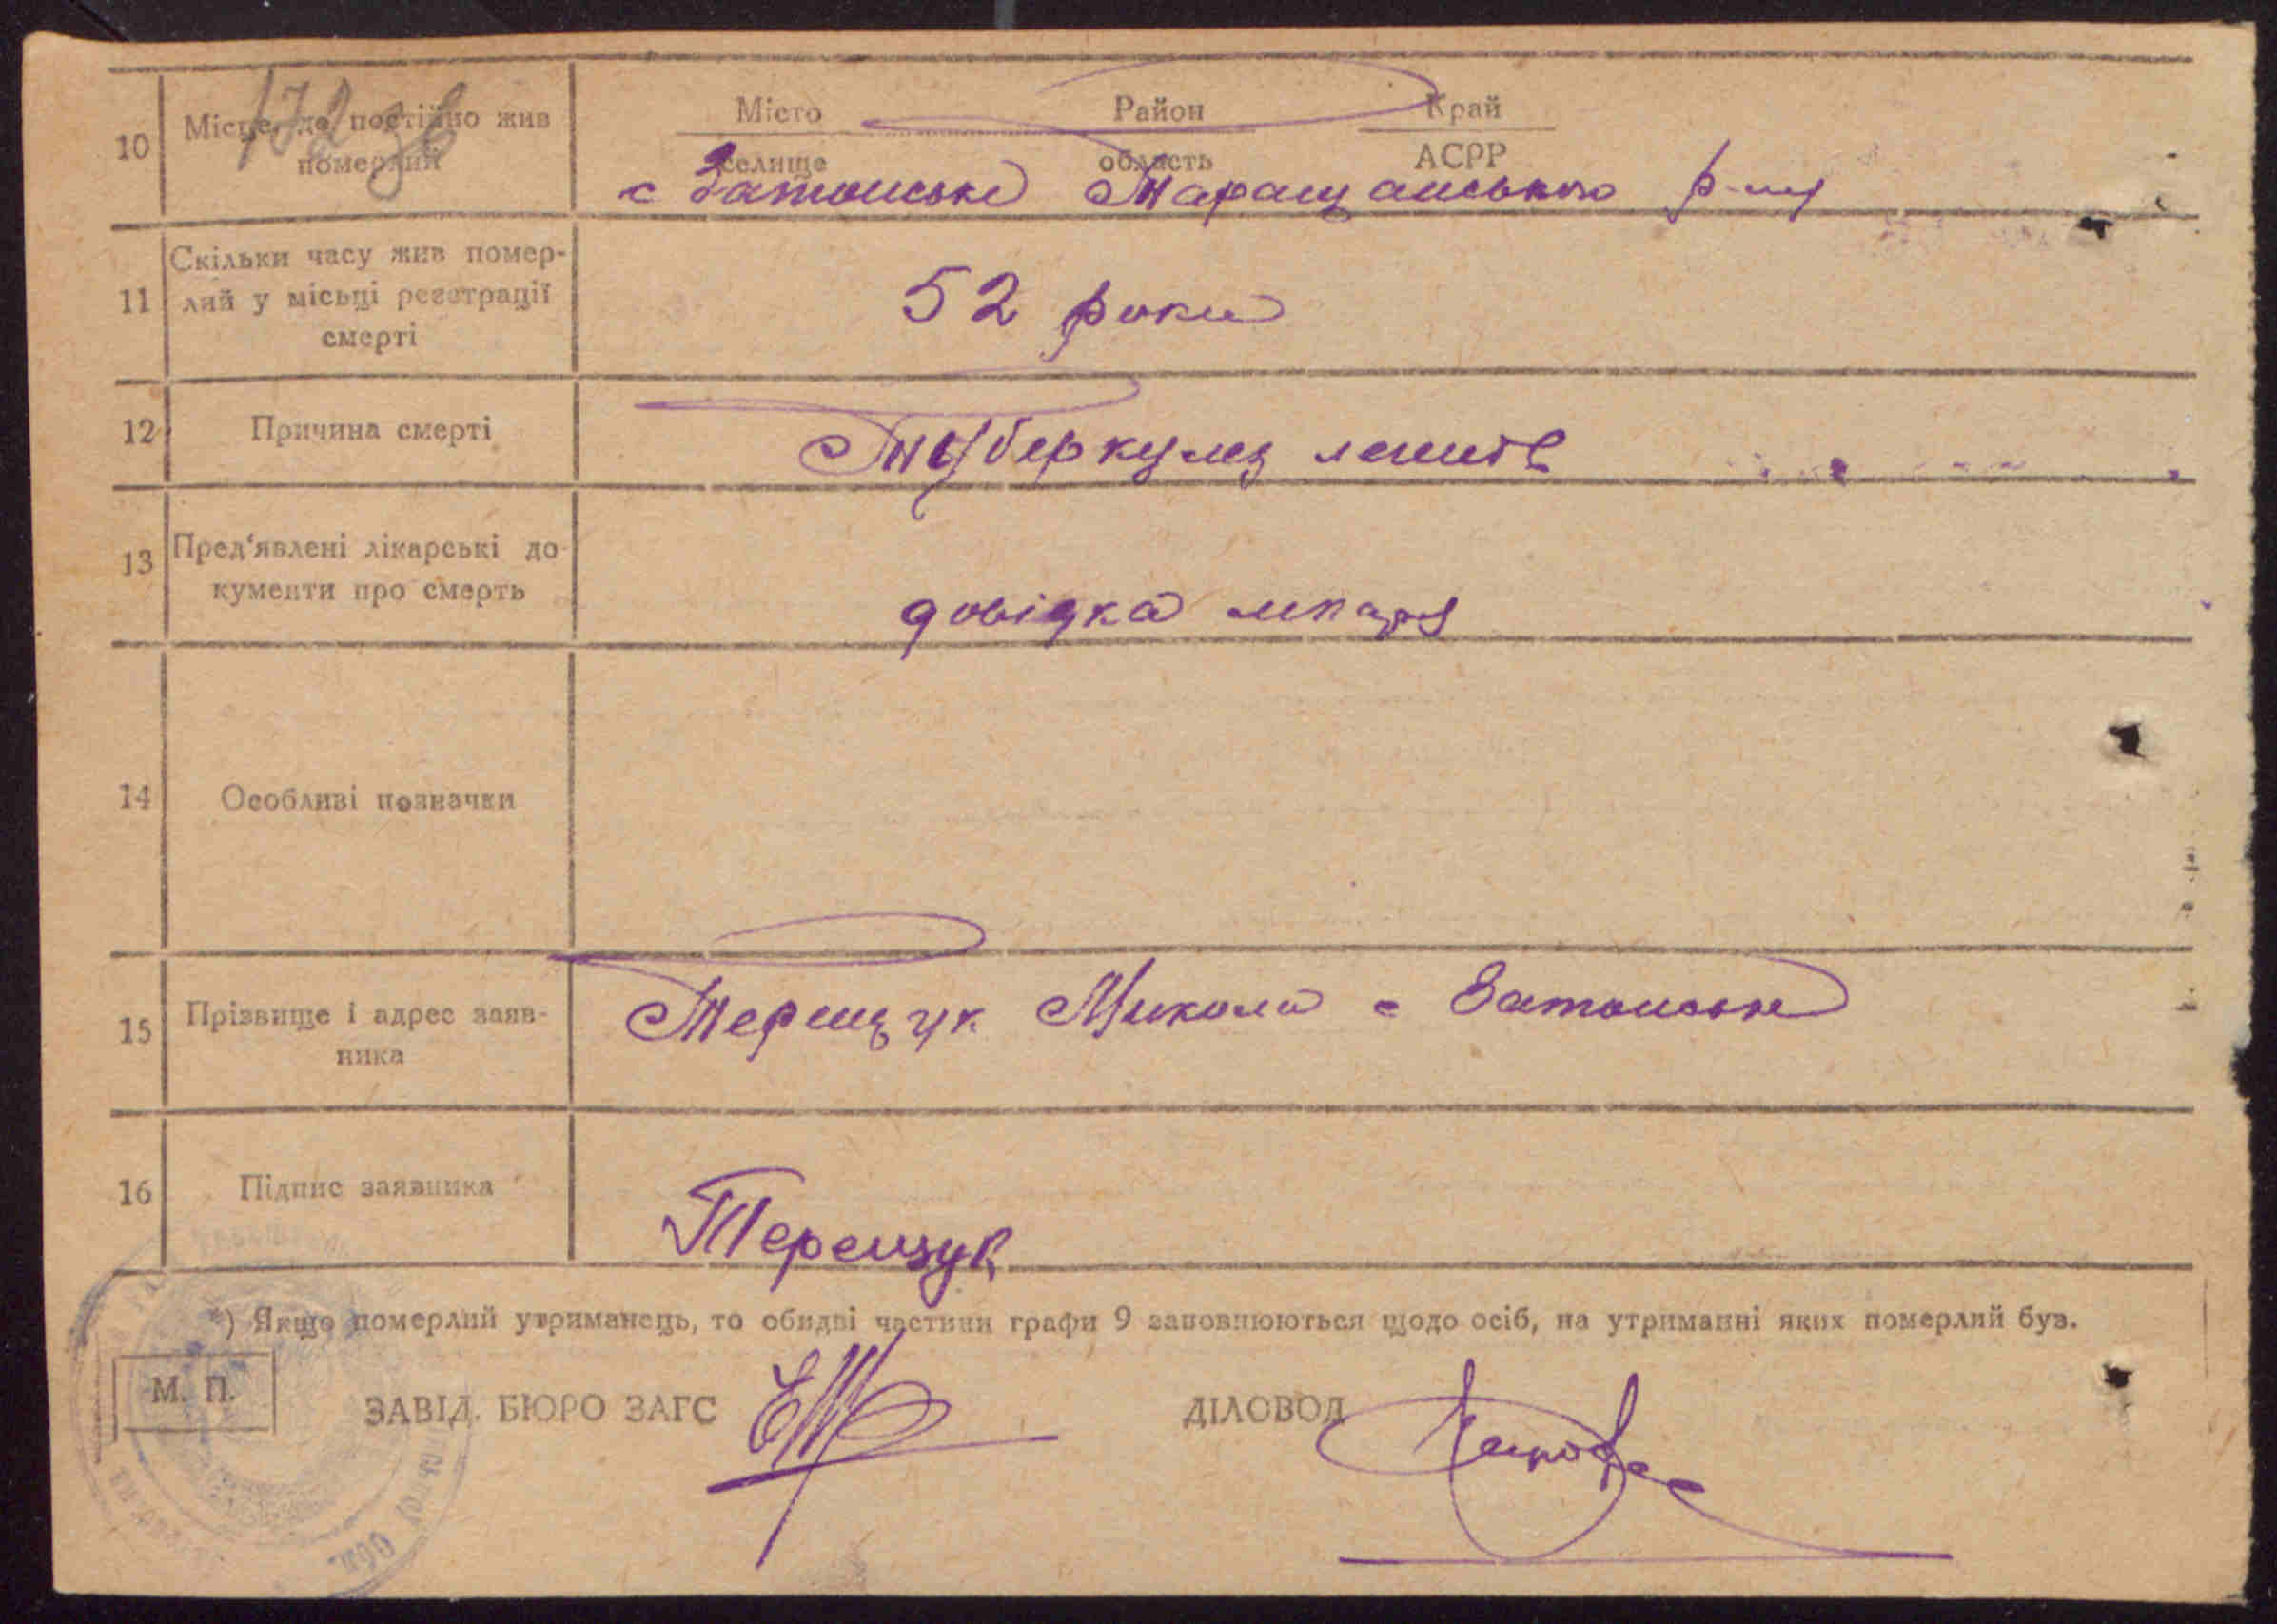 172 зв
10 Місце, де постійно жив
померлий
Місто Район Край
селище область АСРР
с Затонське Таращанського р-ну
11 Скільки часу жив помер-
лий у місьці реєстрації
смерті
52 роки
12 Причина смерті
Туберкульоз легенів
13 Пред‘явлені лікарські до-
кументи про смерть
довідка лікаря
14 Особливі позначки
15 Прізвище і адрес заяв-
ника
Терещук Микола с Затонське
16 Підпис заявника
Терещук
*) Якщо померлий утриманець, то обидві частини графи 9 заповнюються щодо осіб, на утриманні яких померлий був.
М. П.
ЗАВІД. БЮРО ЗАГС
ДІЛОВОД